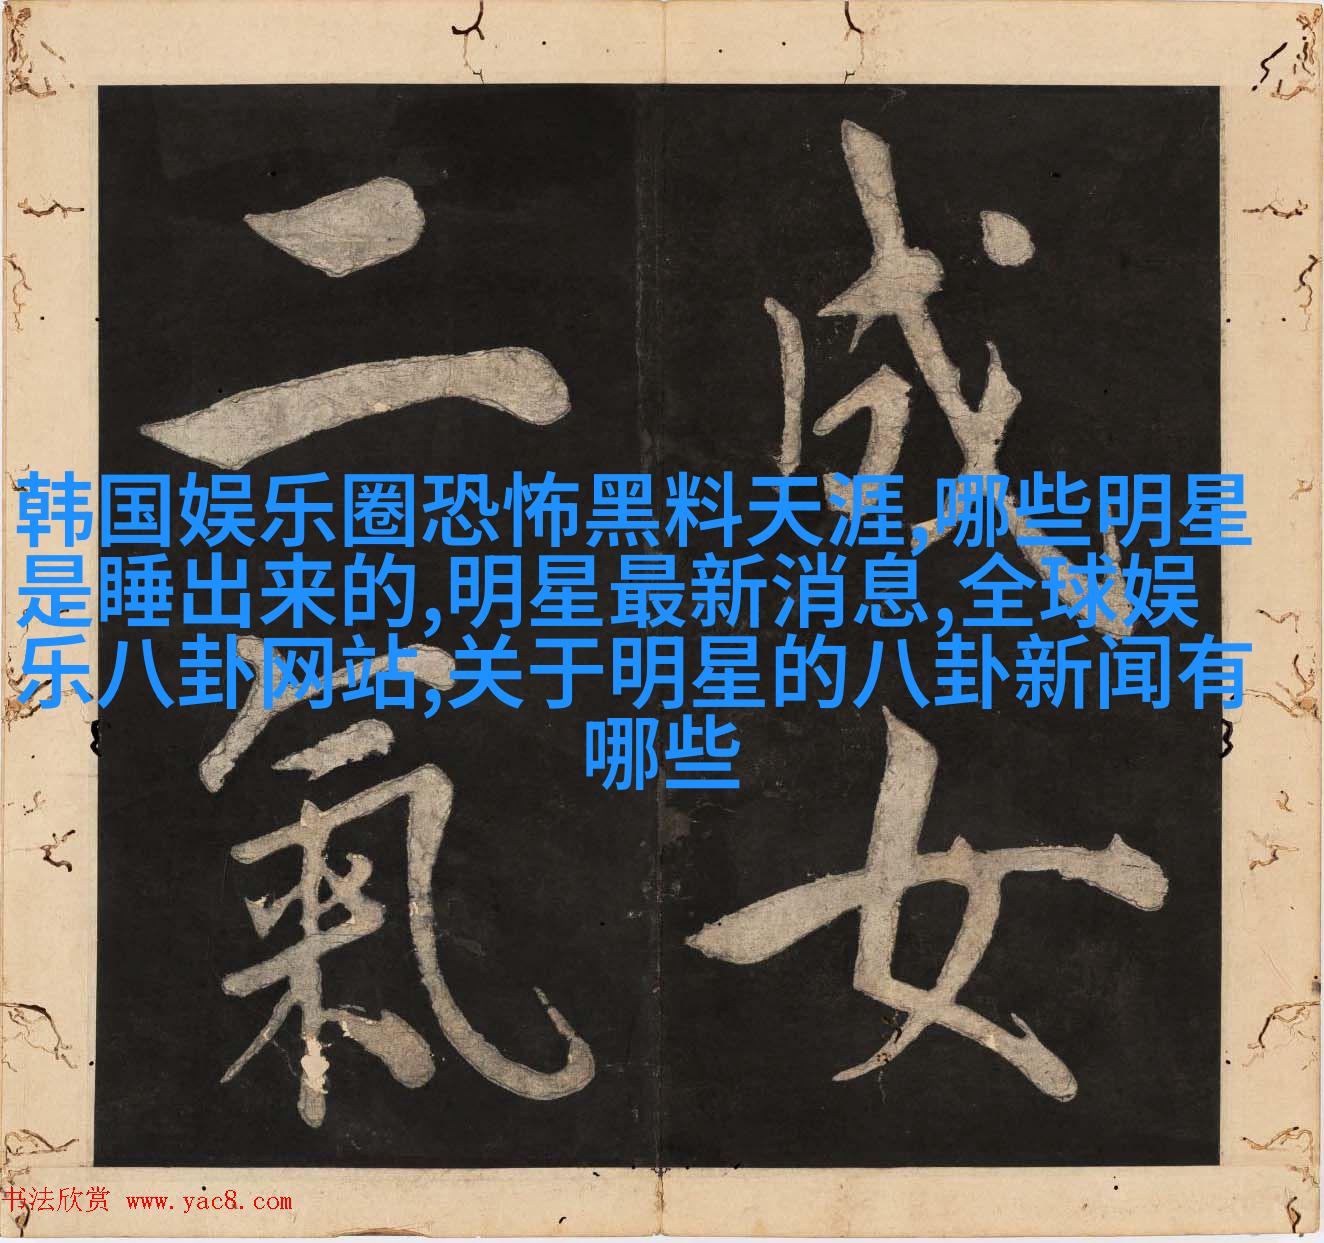 韩国娱乐圈恐怖黑料天涯,哪些明星
是睡出来的,明星最新消息,全球娱
乐八卦网站,关于明星的八卦新闻有
哪些
成女
二氣
书法欣赏 www.yac8.com